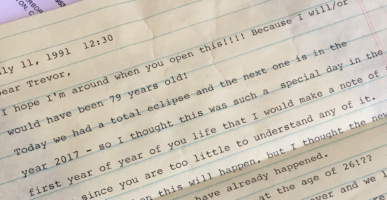 ly 11, 1991 12:30
ear Trevor,
I hope I'm around when you open this!!!! Because I will/or
would have been 79 years old!
Today we had a total eclipse and the next one is in the
year 2017 - so I thought this was such a special day in the
first year of year of you life that I would make a note of
since you are too little to understand any of it.
en this will happen, but I thought the new
have already happened.
at the age of 26!??
ver and we l